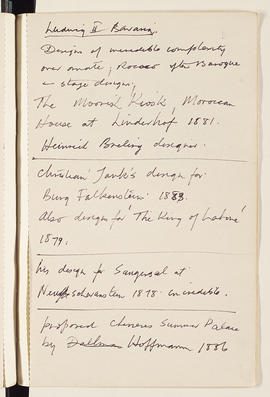 Ludwig II Bavaria.
Designs of incredible complexity
over ornate, Rococo after Baroque
– stage designs,
The Moorish Kiosk, Moroccan
House at Linderhof 1881.
Heinrich Breling designer.
Christian Jank's design for
Burg Falkenstein 1883.
Also designs for 'The King of Lahore'
1879.
his design for Sangersaal at
Neuschwanstein 1878 incredible.
proposed Chinese Summer Palace
by Hoffmann 1886